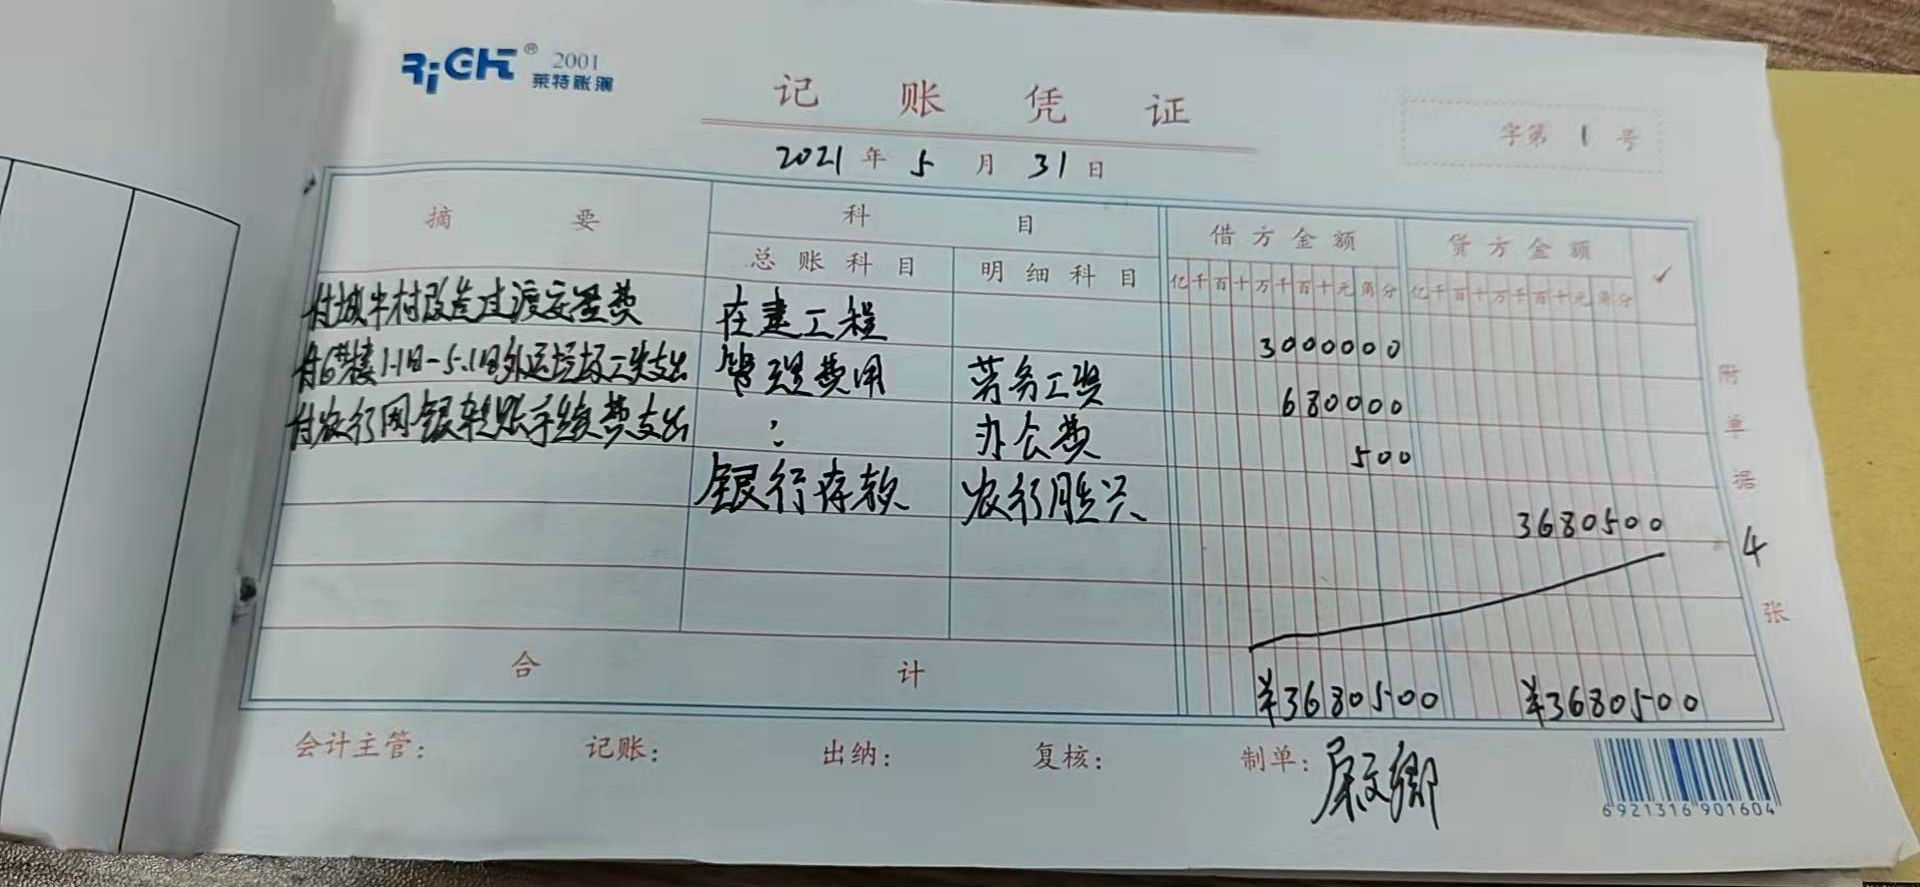 RiGHT® 2001
莱特账簿
记账凭证
字第 1 号
2021 年 5 月 31 日
摘要 科目 借方金额 贷方金额 ✓
总账科目 明细科目 亿千百十万千百十元角分 亿千百十万千百十元角分
付城中村改造过渡安置费 在建工程 3000000
付6#楼1.1日-5.1日外运垃圾工资支出 管理费用 劳务工资 680000
付农行网银转账手续费支出 : 办公费 500
银行存款 农行胜兴 3680500
合计 ¥3680500 ¥3680500
附单据 4 张
会计主管: 记账: 出纳: 复核: 制单:
6921316901604